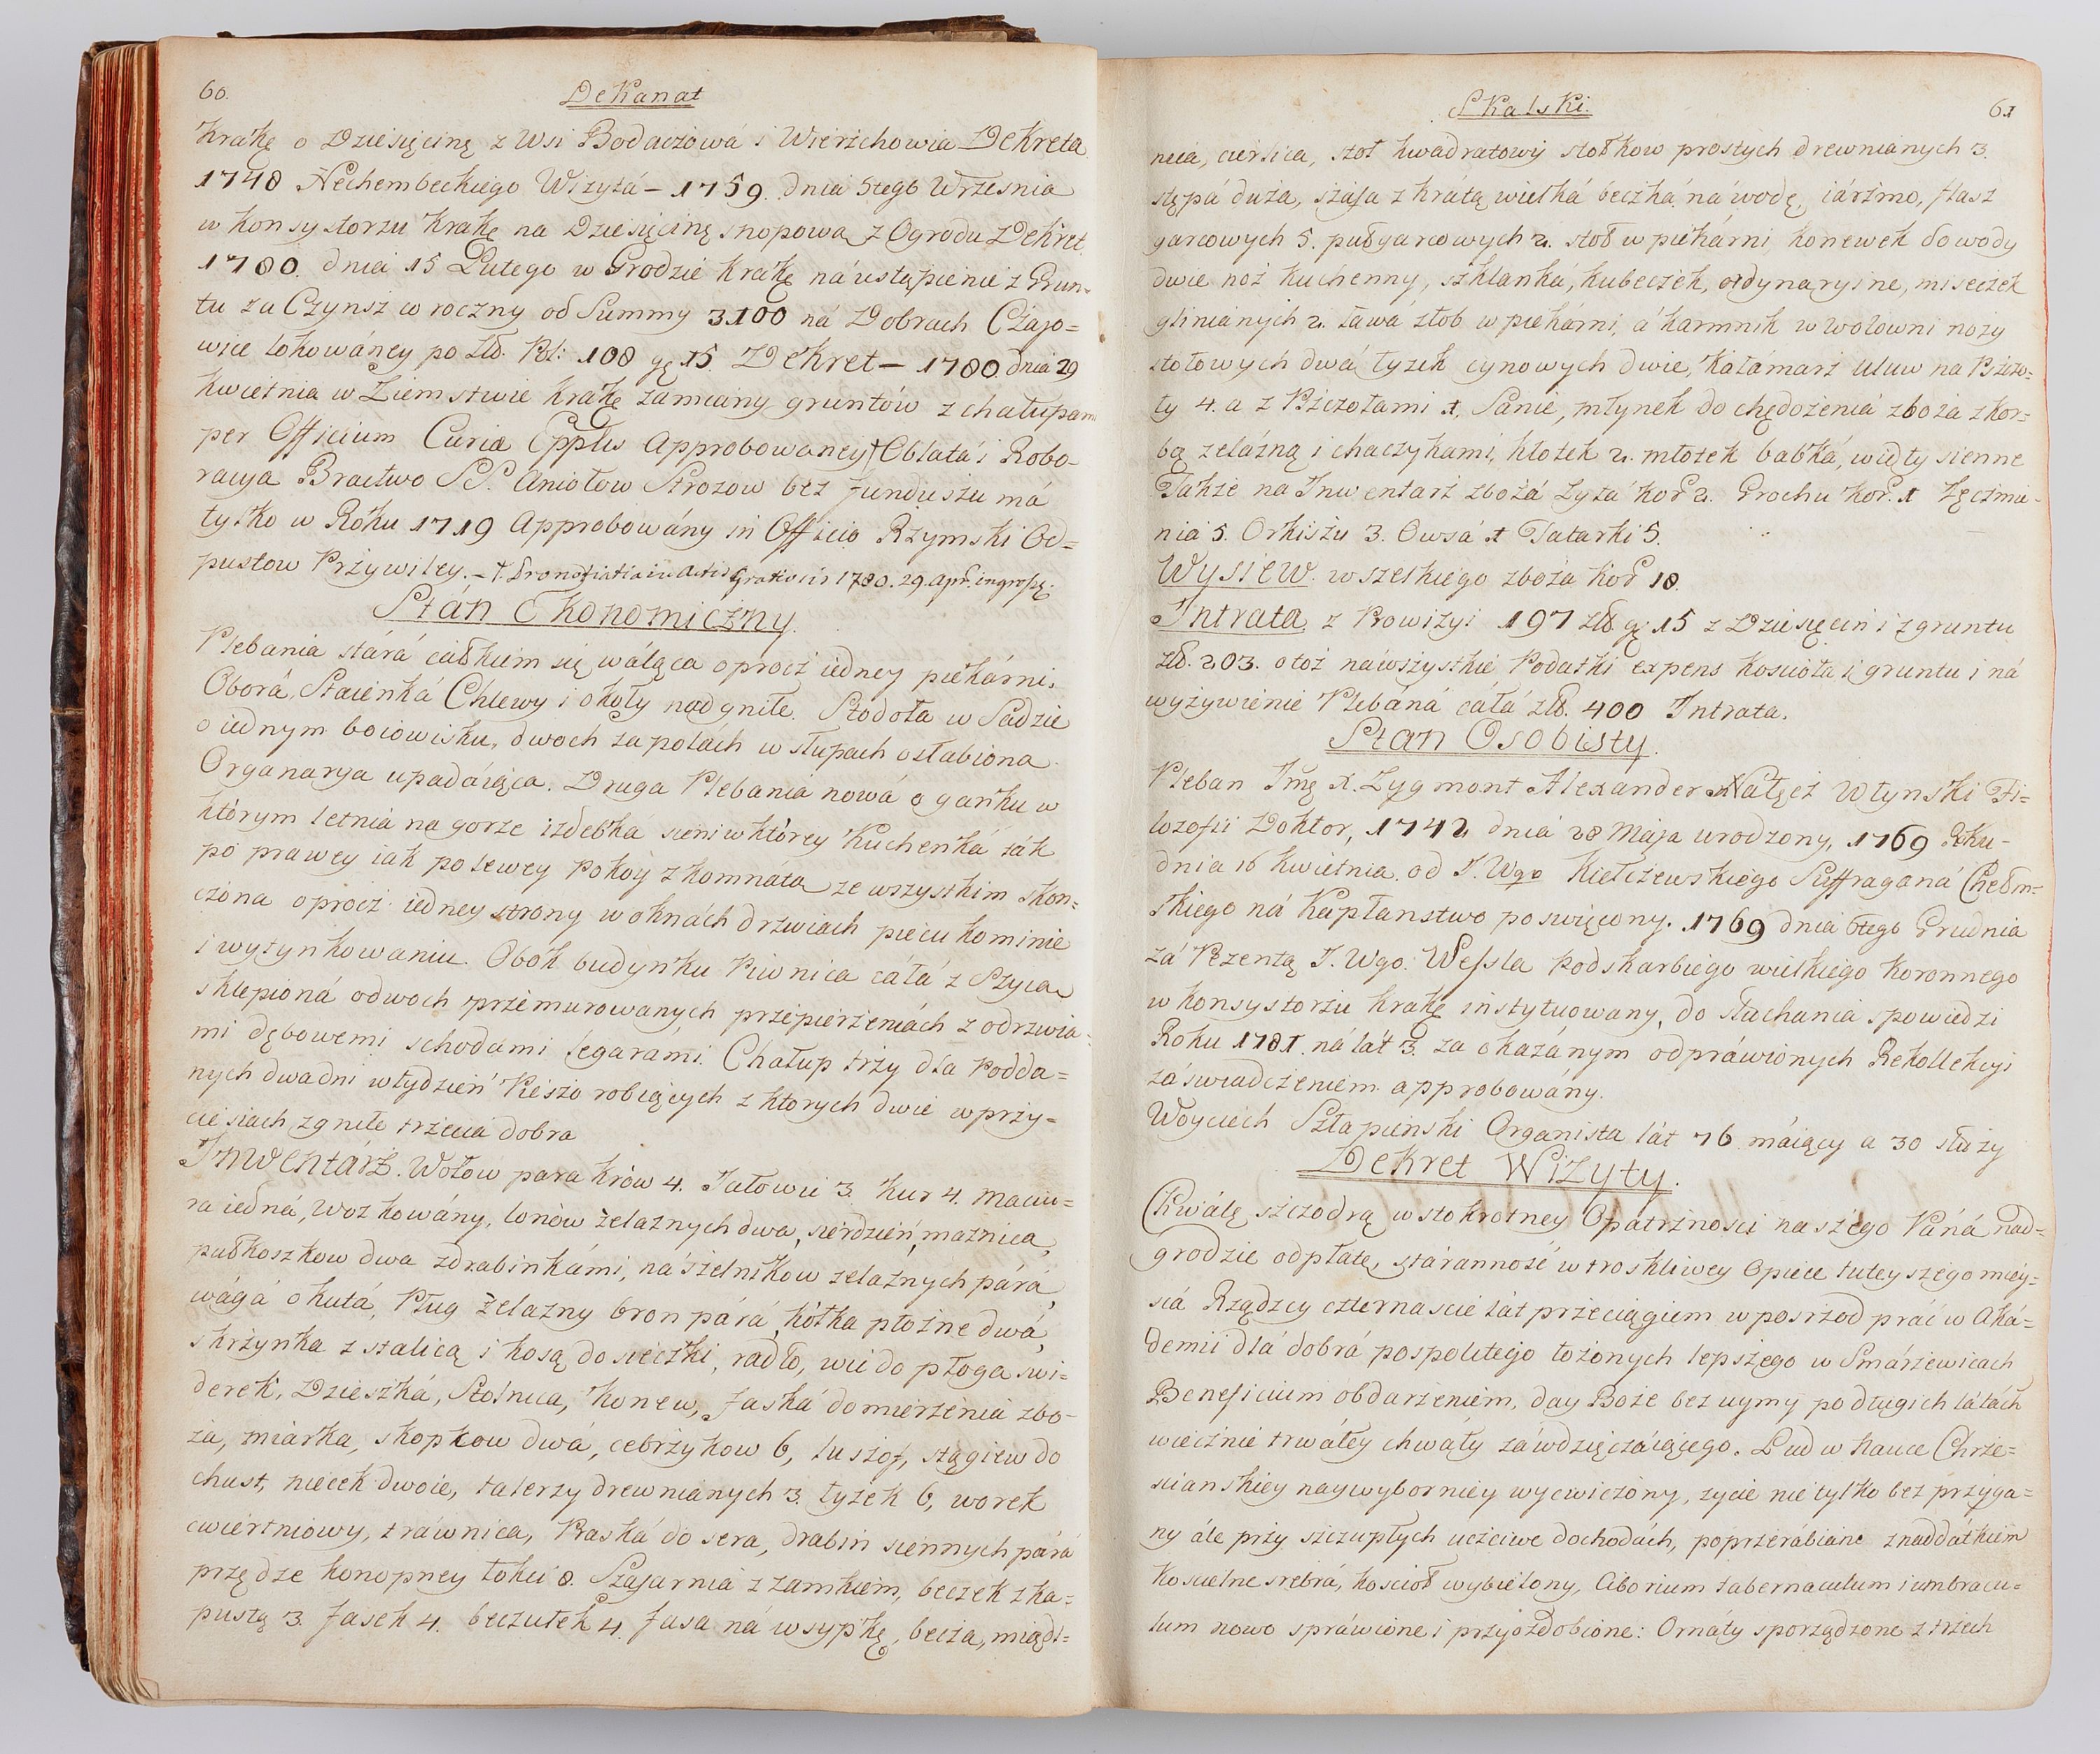 60.
DeKanat
Krakę o Dziesięcinę z Wsi Bodaczowá i Wierzchowia DeKreta
1748 Nechembeckiego Wizytá – 1759. dnia 5tegō Wrzesnia
w Konsystorzu Krakę na Dziesięcinę snopową z Ogrodu DeKret
1780. dnia 15 Lutego w Grodzie Krakę ná ustąpienie z Grun-
tu za Czynsz co roczny od Summy 3100 ná Dobrach Czajo=
wice lokowáney po Zł. Pol: 108 gę 15. DeKret – 1780. dnia 29
Kwietnia w Ziemstwie Krakę zamiany gruntów z chałupam
per Officium Curiæ Epplis Approbowaney † Oblatá i Robo-
racya Bractwo SS. Aniołow Strozow bez funduszu má
tylko w Roku 1719 Approbowány in Officio Rzymski Od=
pustow Przywiley. –
1780. 29. Apr.
Stán Ekonomiczny.
Plebania stárá całkiem się wáląca oprocz iedney piekárni,
Oborá, Staienká Chlewy i okoły nadgniłe. Stodoła w Sadzie
o iednym boiowisku, dwoch zapolach w słupach osłabiona.
Organarya upadáiąca. Druga Plebania nowá o ganku w
którym letnia na gorze izdebká sieni w którey Kuchenká ták
po prawey iak po lewey Pokoy z komnáta ze wszystkim skon:
czona oprocz iedney strony w oknách drzwiach piecu kominie
i wytynkowaniu. Obok budynku Piwnica cáłá z Szyią
sklepioná o dwoch przemurowanych przepierzeniách z odrzwia=
mi dębowemi schodámi légarámi. Chałup trzy dla Podda=
nych dwa dni w tydzień Pieszo robiących z ktorych dwie w przy=
ciesiach zgniłe trzecia dobra
Inwentárz. Wołow para krów 4. Jałowic 3. kur 4. maciu=
ra iedná, woz kowány, lonów żelaznych dwa, sierdzień, maźnica,
pułkoszkow dwa z drabinkámi, nászelników żelaznych párá,
wágá okutá, Pług żelazny bron párá, kółka płożne dwá,
skrzynka z stalicą i kosą do sieczki, radło, wie do płoga swi-
derek, Dzieszká, Stolnica, Konew, faská do mierzenia zbo-
ża, miarka, skopkow dwá, cebrzykow 6, tuszof, stągiew do
chust, niecek dwoie, talerzy drewnianych 3. łyżek 6, worek
cwiertniowy, tráwnica, Praská do sera, drabin siennych párá
przędze konopney łokci 8. Szafarnia z zamkiem, beczek z ka=
pustą 3. fasek 4. beczułek 4. fasa ná wsypkę, becza, międl=
Skalski.
61
nica, cierlica, stoł kwadratowy stołkow prostych drewnianych 3.
stępá duża, szafa z krátą wielká beczká ná wodę, iárzmo, flasz
garcowych 5. pułgarcowych 2. stoł w piekárni, konewek do wody
dwie noż kuchenny, szklanká, kubeczek, ordynaryine, miseczek
glinianych 2. ława złob w piekárni, á karmnik w wołowni noży
stołowych dwá łyżek cynowych dwie, Káłámarz uluw na Pszczo=
ły 4. a z Pszczołami 1. Sanie, młynek do chędożenia zboża z kor=
bą zelázną i chaczykami, kłotek 2. młotek babká, widły sienne
Także na Inwentarz zbożá żytá kor. 2. Grochu kor. 1 Jęczmie-
nia 5. Orkiszu 3. Owsá 1 Tatarki 5.
Wysiew. wszelkiego zboża kor. 18.
Intrata z Prowizyi 197 Zł. gę 15 z Dziesięcin i z gruntu
Zł. 203. otoż ná wszystkie Podatki expens kościoła i gruntu i ná
wyżywienie Plebáná cáłá Zł. 400 Intrata.
Stan Osobisty.
Pleban Jmę X. Zygmont Alexander Nałęcz Włynski Fi=
lozofii Doktor, 1742 dniá 28 Maja urodzony, 1769 Roku-
dnia 16 Kwietnia od J. Wgo Kiełczewskiego Suffraganá Chełm=
skiego ná Kapłanstwo poswięcony. 1769 dnia 6tegō Grudnia
zá Prezentą J. Wgo. Wessla Podskarbiego wielkiego koronnego
w Konsystorzu krakę instytuowany, do słuchania spowiedzi
Roku 1781. ná lát 3. za okazánym odpráwionych Rekollekcyi
záswiadczeniem approbowány.
Woyciech Szłapieński Organista lát 76 máiący a 30 służy
Dekret Wizyty.
Chwálę szczodrą w stokrotney Opatrznosci naszego Páná nad=
grodzie odpłatę, stáranność w troskliwey Opiece tuteyszego miey=
scá Rządzcy czternascie lát przeciągiem w posrzod prać w Aká=
demii dlá dobrá pospolitego łożonych lepszego w Smárzewicach
Beneficium obdarzeniem, day Boże bez uymy po długich látách
wiecznie trwáłey chwáły záwdzięczáiącego. Lud w Nauce Chrze=
scianskiey naywyborniey wycwiczony, życie nie tylko bez przyga=
ny ále przy szczupłych uczciwe dochodách, poprzerábiane z naddátkiem
Koscielne srebrá, kościoł wybielony, Ciborium tabernaculum i umbracu=
lum nowo spráwione i przyozdobione: Ornáty sporządzone z trzech